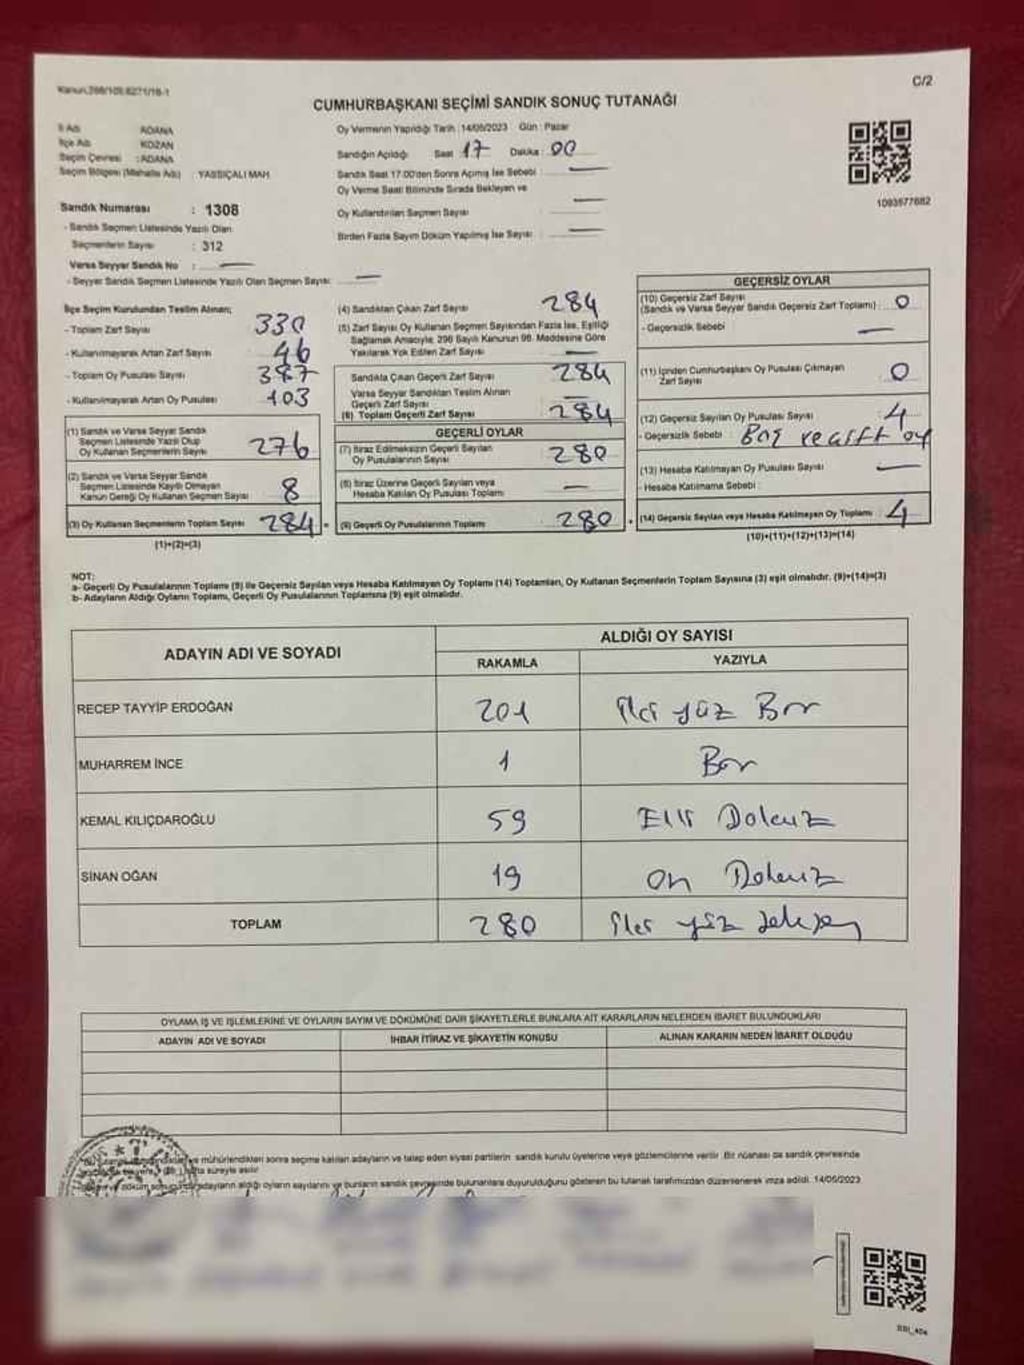 Kanun,298/105,6271/18-1
C/2
CUMHURBAŞKANI SEÇİMİ SANDIK SONUÇ TUTANAĞI
İl Adı ADANA
İlçe Adı KOZAN
Seçim Çevresi : ADANA
Seçim Bölgesi (Mahalle Adı) : YASSIÇALI MAH.
Sandık Numarası : 1308
- Sandık Seçmen Listesinde Yazılı Olan
Seçmenlerin Sayısı : 312
Varsa Seyyar Sandık No : —
- Seyyar Sandık Seçmen Listesinde Yazılı Olan Seçmen Sayısı: —
Oy Vermenin Yapıldığı Tarih : 14/05/2023 Gün : Pazar
Sandığın Açıldığı Saat 17 Dakika : 00
Sandık Saat 17.00'den Sonra Açılmış İse Sebebi : —
Oy Verme Saati Bitiminde Sırada Bekleyen ve
Oy Kullandırılan Seçmen Sayısı : —
Birden Fazla Sayım Döküm Yapılmış İse Sayısı : —
1093577682
İlçe Seçim Kurulundan Teslim Alınan;
- Toplam Zarf Sayısı 330
- Kullanılmayarak Artan Zarf Sayısı 46
- Toplam Oy Pusulası Sayısı 387
- Kullanılmayarak Artan Oy Pusulası : 103
(1) Sandık ve Varsa Seyyar Sandık
Seçmen Listesinde Yazılı Olup
Oy Kullanan Seçmenlerin Sayısı 276
(2) Sandık ve Varsa Seyyar Sandık
Seçmen Listesinde Kayıtlı Olmayan
Kanun Gereği Oy Kullanan Seçmen Sayısı 8
(3) Oy Kullanan Seçmenlerin Toplam Sayısı 284 =
(1)+(2)=(3)
(4) Sandıktan Çıkan Zarf Sayısı 284
(5) Zarf Sayısı Oy Kullanan Seçmen Sayısından Fazla İse, Eşitliği
Sağlamak Amacıyla, 298 Sayılı Kanunun 98. Maddesine Göre
Yakılarak Yok Edilen Zarf Sayısı : —
Sandıkta Çıkan Geçerli Zarf Sayısı 284
Varsa Seyyar Sandıktan Teslim Alınan
Geçerli Zarf Sayısı : —
(6) Toplam Geçerli Zarf Sayısı 284
GEÇERLİ OYLAR
(7) İtiraz Edilmeksizin Geçerli Sayılan
Oy Pusulalarının Sayısı : 280
(8) İtiraz Üzerine Geçerli Sayılan veya
Hesaba Katılan Oy Pusulası Toplamı —
(9) Geçerli Oy Pusulalarının Toplamı 280 +
GEÇERSİZ OYLAR
(10) Geçersiz Zarf Sayısı
(Sandık ve Varsa Seyyar Sandık Geçersiz Zarf Toplamı) : 0
- Geçersizlik Sebebi : —
(11) İçinden Cumhurbaşkanı Oy Pusulası Çıkmayan
Zarf Sayısı : 0
(12) Geçersiz Sayılan Oy Pusulası Sayısı 4
- Geçersizlik Sebebi : Boş ve çift oy
(13) Hesaba Katılmayan Oy Pusulası Sayısı : —
- Hesaba Katılmama Sebebi :
(14) Geçersiz Sayılan veya Hesaba Katılmayan Oy Toplamı : 4
(10)+(11)+(12)+(13)=(14)
NOT:
a- Geçerli Oy Pusulalarının Toplamı (9) ile Geçersiz Sayılan veya Hesaba Katılmayan Oy Toplamı (14) Toplamları, Oy Kullanan Seçmenlerin Toplam Sayısına (3) eşit olmalıdır. (9)+(14)=(3)
b- Adayların Aldığı Oyların Toplamı, Geçerli Oy Pusulalarının Toplamına (9) eşit olmalıdır.
ADAYIN ADI VE SOYADI ALDIĞI OY SAYISI
RAKAMLA YAZIYLA
RECEP TAYYİP ERDOĞAN 201 iki yüz Bir
MUHARREM İNCE 1 Bir
KEMAL KILIÇDAROĞLU 59 Elli Dokuz
SİNAN OĞAN 19 on Dokuz
TOPLAM 280 iki yüz seksen
OYLAMA İŞ VE İŞLEMLERİNE VE OYLARIN SAYIM VE DÖKÜMÜNE DAİR ŞİKAYETLERLE BUNLARA AİT KARARLARIN NELERDEN İBARET BULUNDUKLARI
ADAYIN ADI VE SOYADI İHBAR İTİRAZ VE ŞİKAYETİN KONUSU ALINAN KARARIN NEDEN İBARET OLDUĞU
ve mühürlendikten sonra seçime katılan adayların ve talep eden siyasi partilerin sandık kurulu üyelerine veya gözlemcilerine verilir. Bir nüshası da sandık çevresinde
hafta süreyle asılır.
adayların aldığı oyların sayılarını ve bunların sandık çevresinde bulunanlara duyurulduğunu gösteren bu tutanak tarafımızdan düzenlenerek imza edildi. 14/05/2023